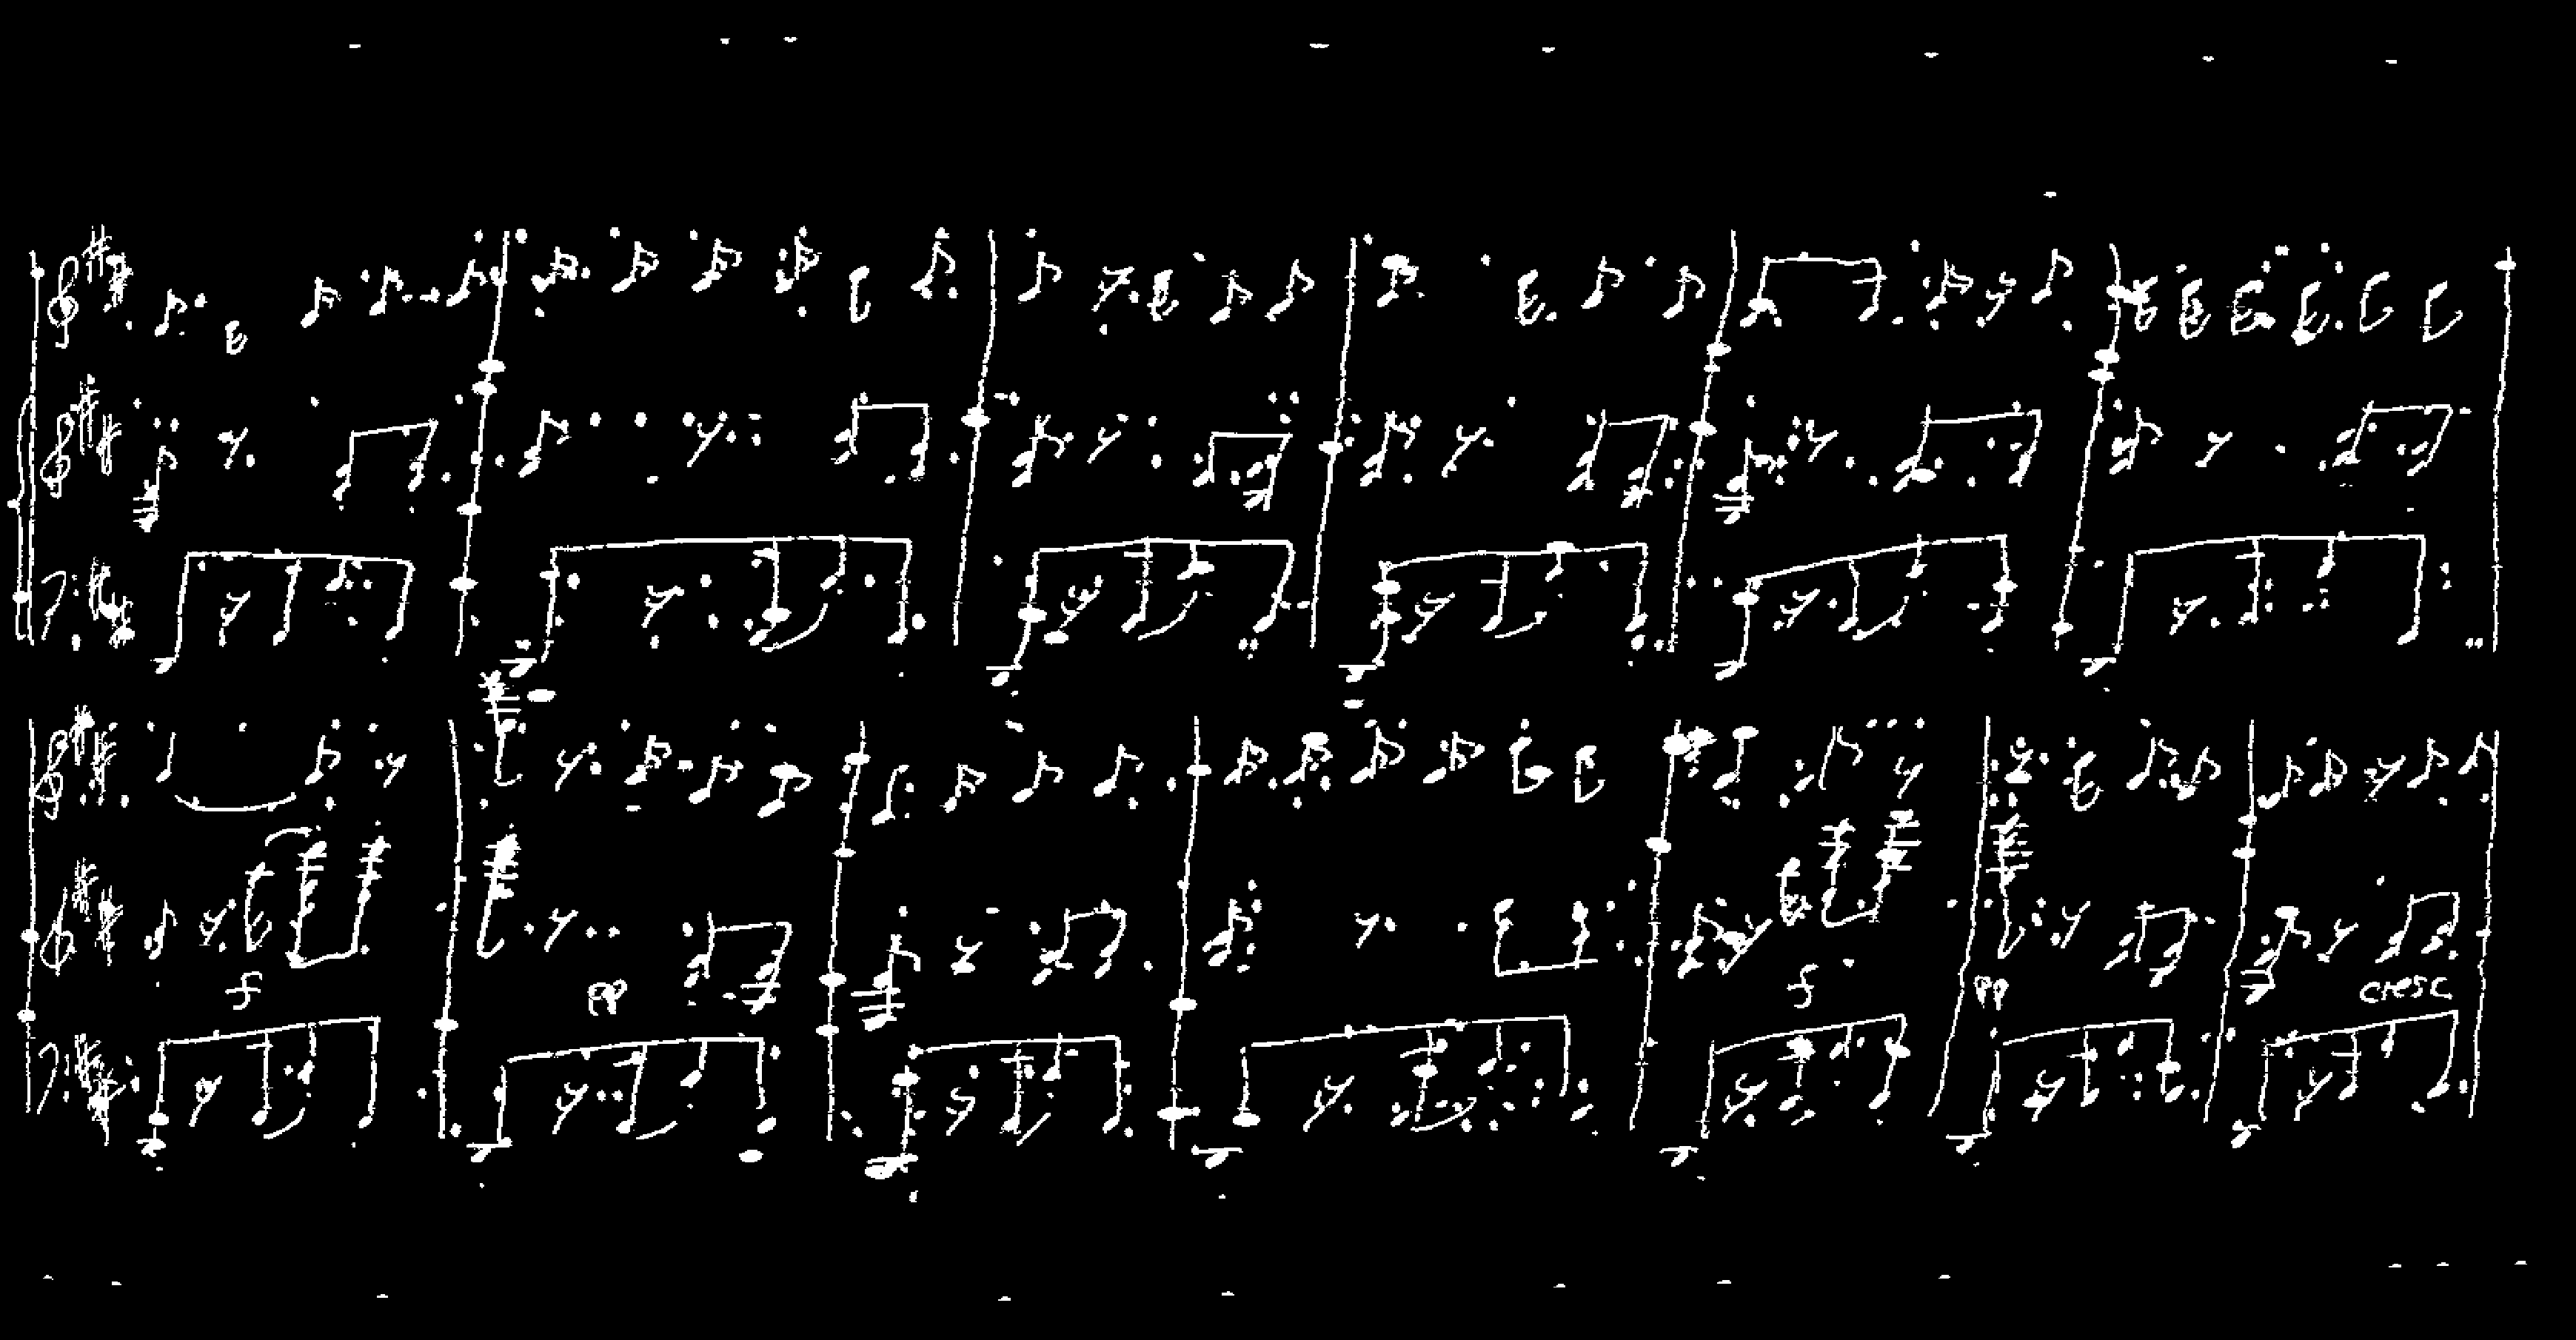 f pp f pp cresc